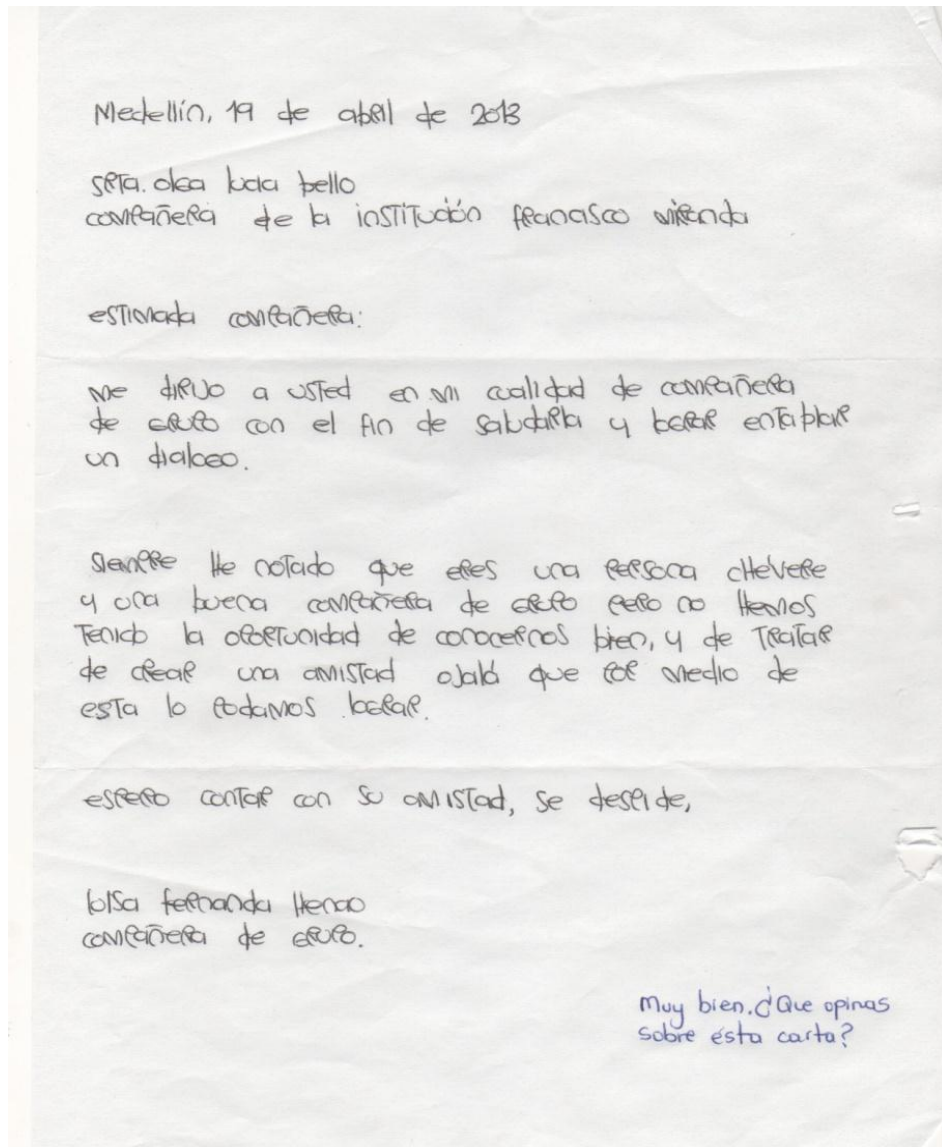 Medellín, 19 de abril de 2013
srta. olga lucia bello
compañera de la institución francisco miranda
estimada compañera:
me dirijo a usted en mi cualidad de compañera
de grupo con el fin de saludarla y lograr entablar
un dialogo.
siempre he notado que eres una persona chévere
y una buena compañera de grupo pero no hemos
tenido la oportunidad de conocernos bien, y de tratar
de crear una amistad ojalá que por medio de
esta lo podamos lograr.
espero contar con su amistad, se despide,
luisa fernanda Henao
compañera de grupo.
Muy bien. ¿Que opinas
sobre ésta carta?